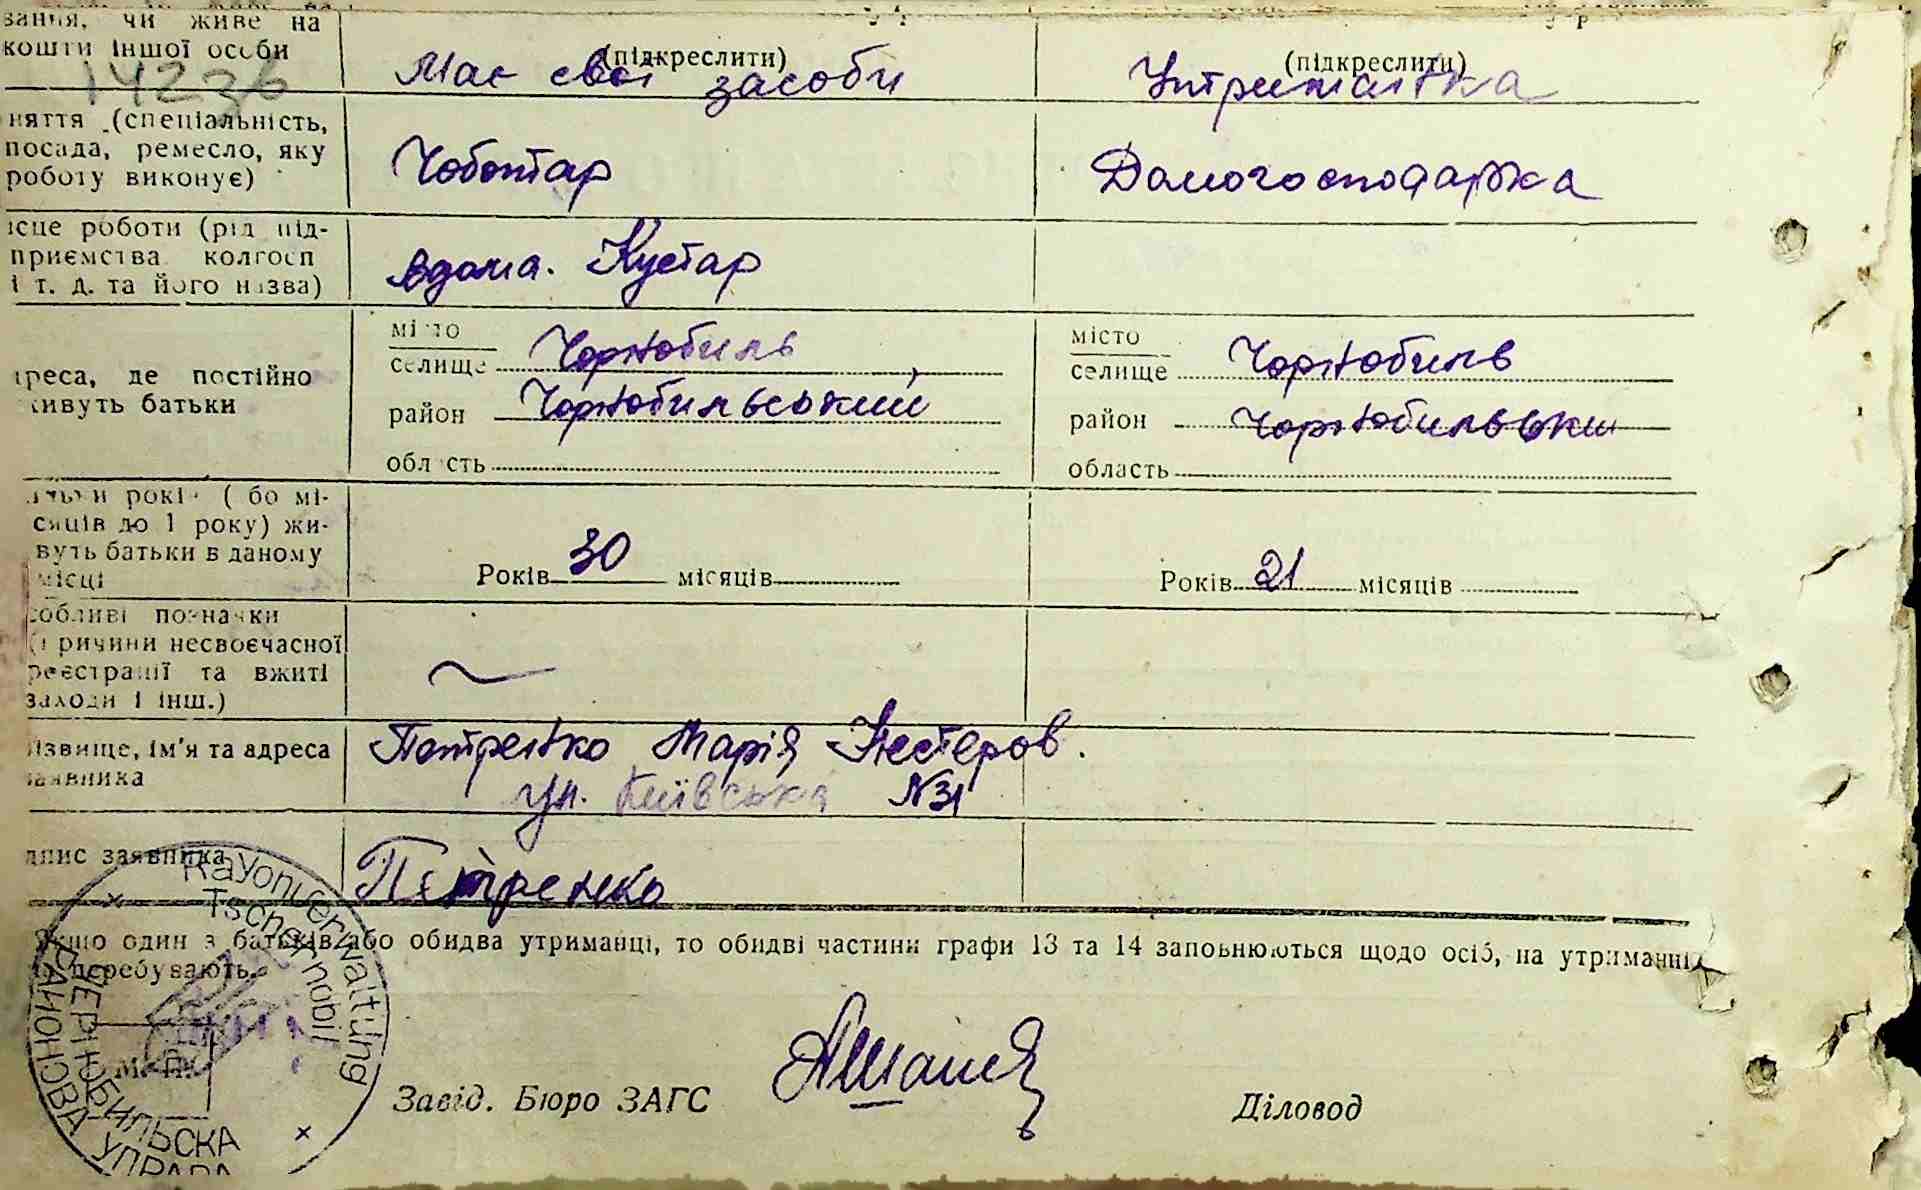 вання, чи живе на
кошти іншої особи
14236
(підкреслити)
(підкреслити)
Має свої засоби
Утриманка
няття (спеціальність,
посада, ремесло, яку
роботу виконує)
Чоботар
Домогосподарка
ісце роботи (рід під-
приємства колгосп
і т. д. та його назва)
вдома. Кустар
адреса, де постійно
живуть батьки
місто
селище Чорнобиль
район Чорнобильський
область
місто
селище Чорнобиль
район Чорнобильськи
область
років ( бо мі-
сяців до 1 року) жи-
вуть батьки в даному
місці
Років 30 місяців
Років 21 місяців
собливі позначки
(причини несвоєчасної
реєстрації та вжиті
заходи і інш.)
ізвище, ім'я та адреса
заявника
Петренко Марія Нестеров.
ул. Київська №31
дпис заявника
Петренко
Якщо один з батьків або обидва утриманці, то обидві частини графи 13 та 14 заповнюються щодо осіб, на утриманні
перебувають.
Rayonverwaltung
Tschernobil
ЧЕРНОБИЛЬСКА
РАЙОНОВА УПРАВА
М. П.
Завід. Бюро ЗАГС
Діловод